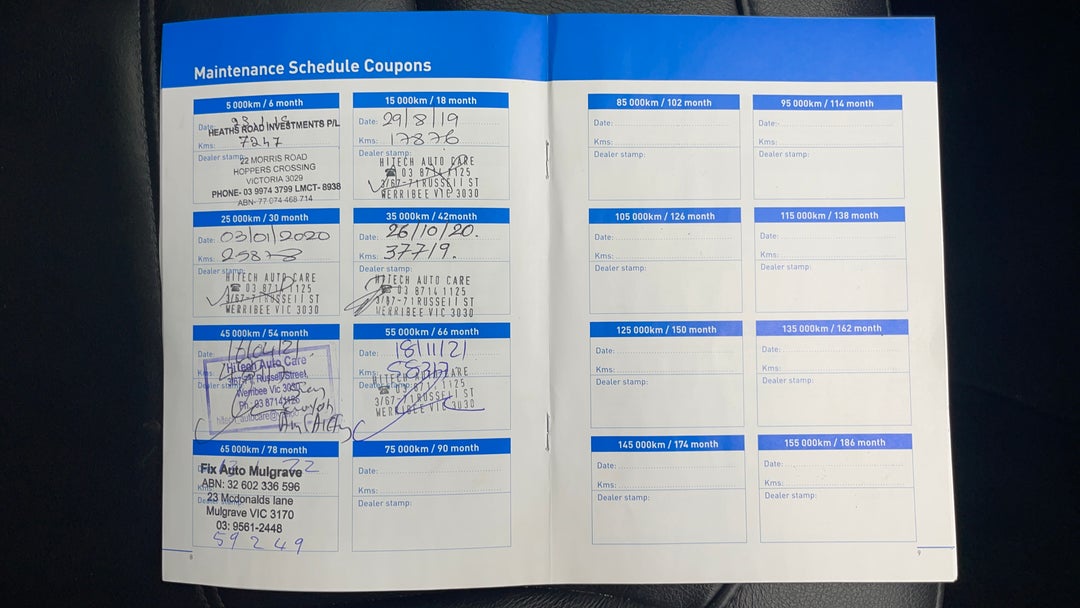 Maintenance Schedule Coupons
5 000km / 6 month
Date:
HEATHS ROAD INVESTMENTS P/L
Kms: 7247
Dealer stamp:
22 MORRIS ROAD
HOPPERS CROSSING
VICTORIA 3029
PHONE- 03 9974 3799 LMCT- 8938
ABN- 77 074 468 714
15 000km / 18 month
Date: 29/8/19
Kms: 17876
Dealer stamp:
HITECH AUTO CARE
☎ 03 8714 1125
3/67-71 RUSSELL ST
WERRIBEE VIC 3030
25 000km / 30 month
Date: 03/01/2020
Kms: 25878
Dealer stamp:
HITECH AUTO CARE
☎ 03 8714 1125
3/67-71 RUSSELL ST
WERRIBEE VIC 3030
35 000km / 42month
Date: 26/10/20.
Kms: 37719.
Dealer stamp:
HITECH AUTO CARE
☎ 03 8714 1125
3/67-71 RUSSELL ST
WERRIBEE VIC 3030
45 000km / 54 month
Date: 16/04/21
Kms:
Dealer stamp:
Hitech Auto Care
3/67-71 Russell Street,
Werribee Vic 3030
Ph: 03 87141125
55 000km / 66 month
Date: 18/11/21
Kms:
Dealer stamp:
HITECH AUTO CARE
☎ 03 871 1125
3/67-71 RUSSELL ST
WERRIBEE VIC 3030
65 000km / 78 month
Date: 22
Fix Auto Mulgrave
Kms:
ABN: 32 602 336 596
Dealer stamp:
23 Mcdonalds lane
Mulgrave VIC 3170
03: 9561-2448
59249
75 000km / 90 month
Date:
Kms:
Dealer stamp:
8
85 000km / 102 month
Date:
Kms:
Dealer stamp:
95 000km / 114 month
Date:
Kms:
Dealer stamp:
105 000km / 126 month
Date:
Kms:
Dealer stamp:
115 000km / 138 month
Date:
Kms:
Dealer stamp:
125 000km / 150 month
Date:
Kms:
Dealer stamp:
135 000km / 162 month
Date:
Kms:
Dealer stamp:
145 000km / 174 month
Date:
Kms:
Dealer stamp:
155 000km / 186 month
Date:
Kms:
Dealer stamp:
9